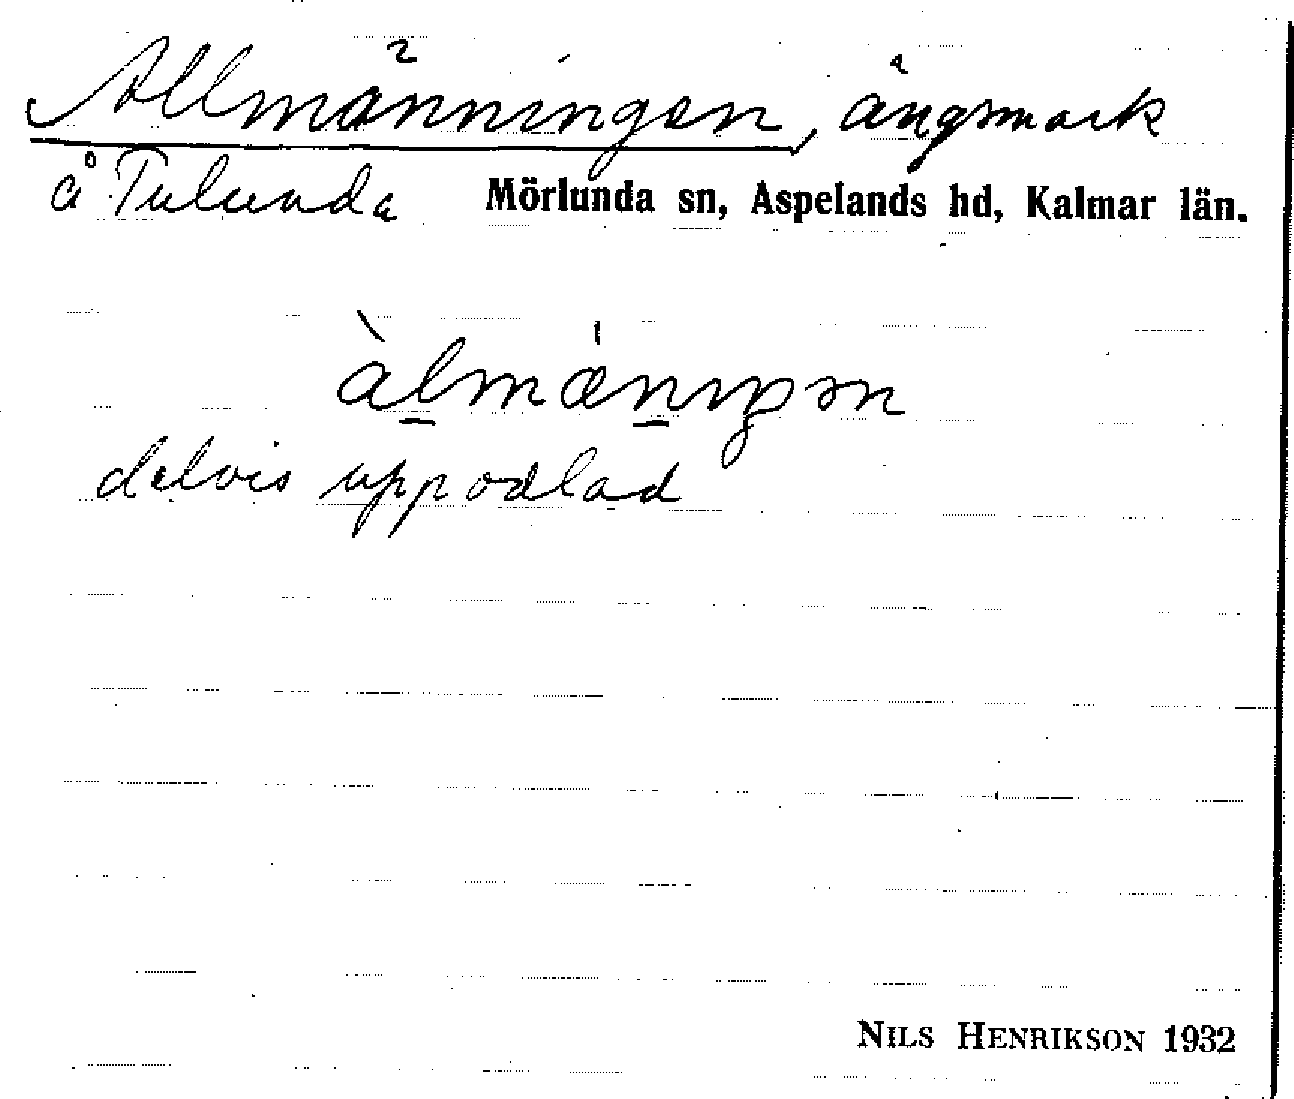 Allmänningen, ängsmark
å Tulunda Mörlunda sn, Aspelands hd, Kalmar län.
àlmǽnıŋən
delvis uppodlad
NILS HENRIKSON 1932